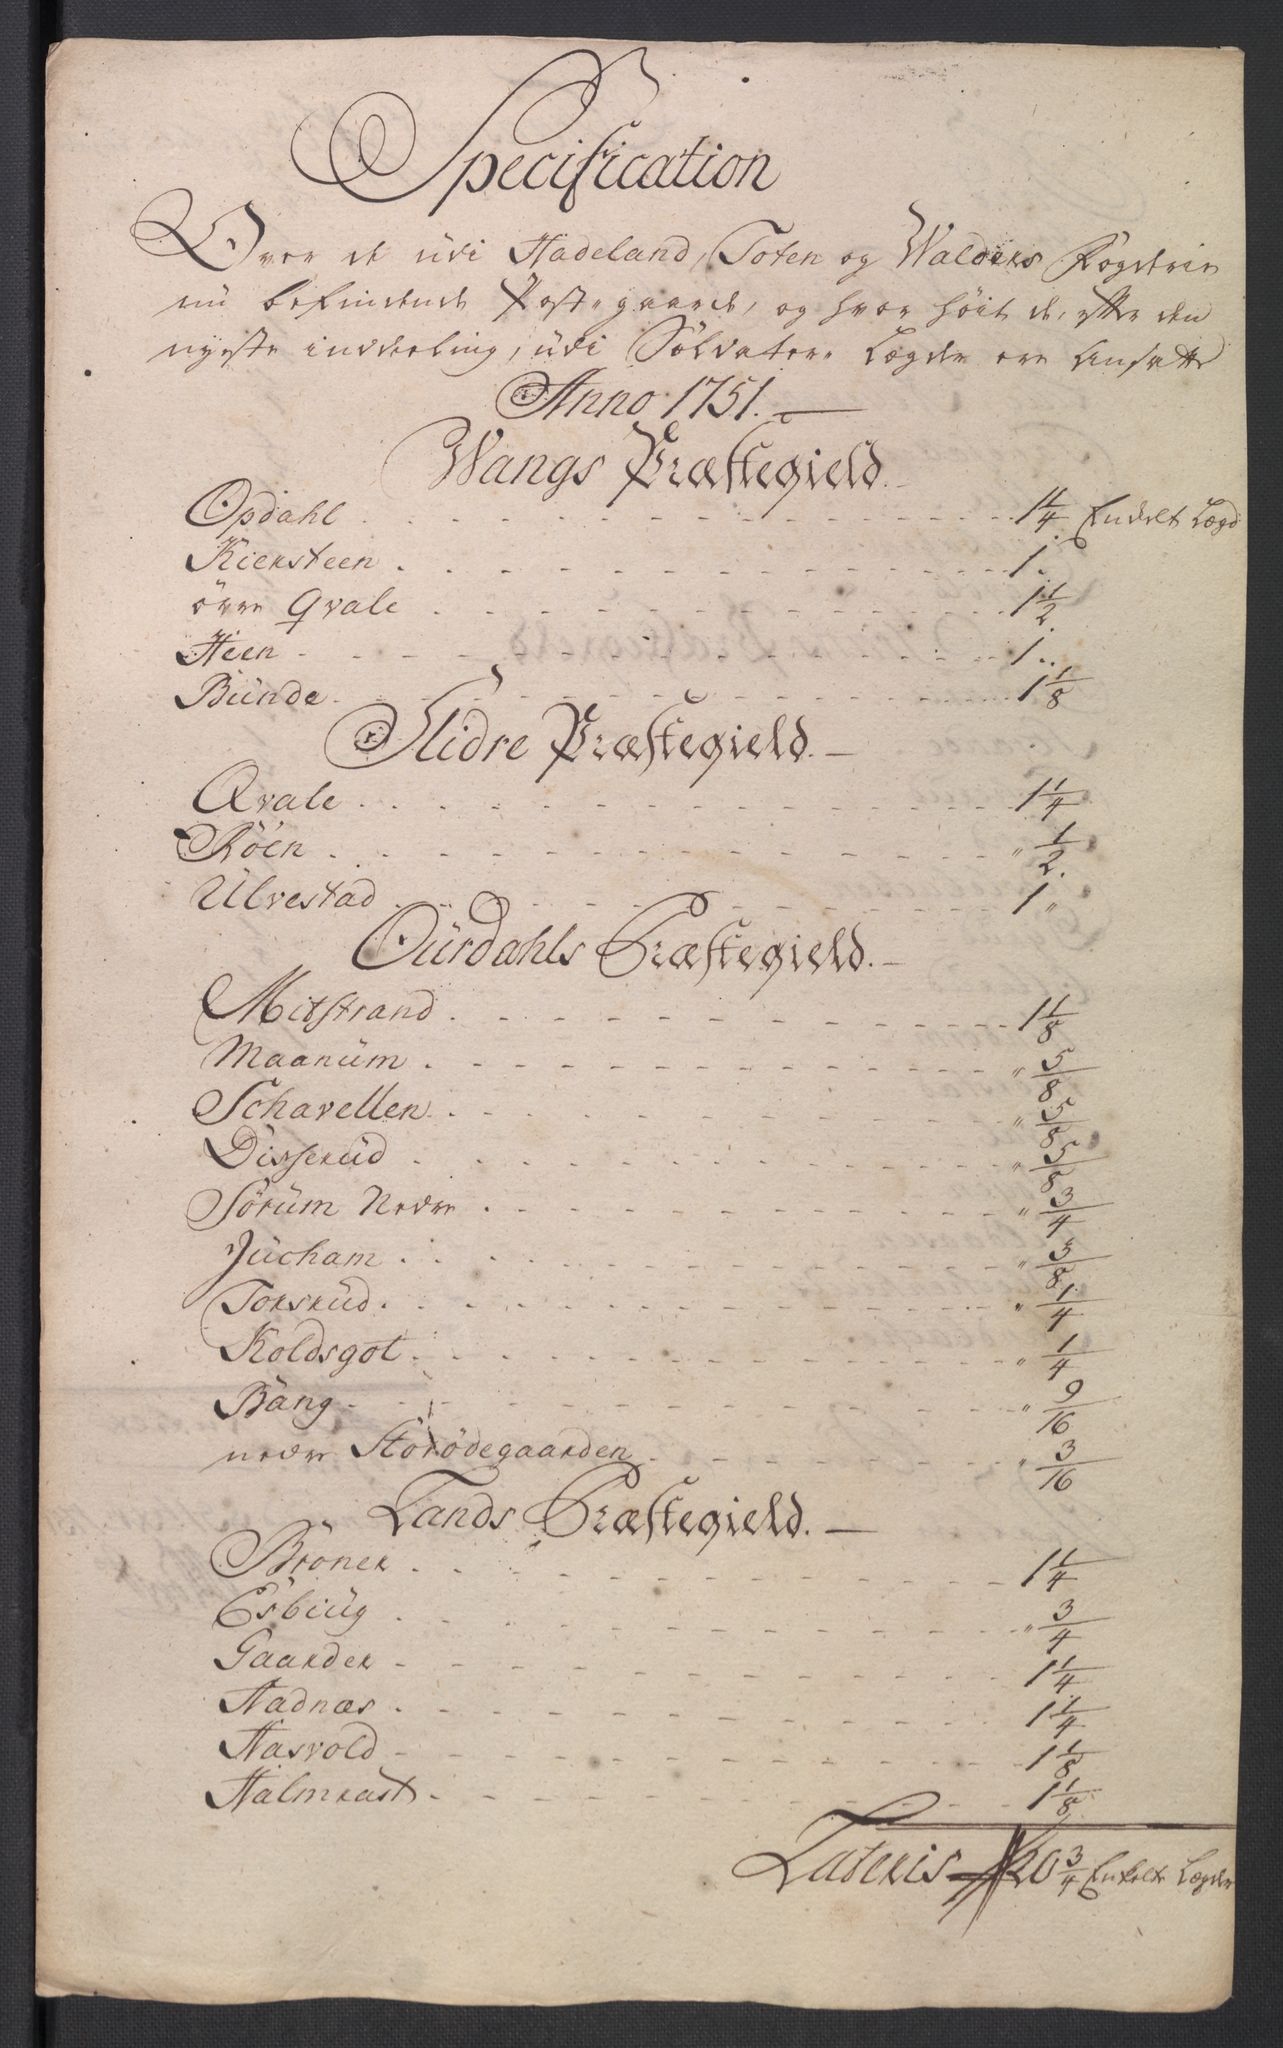 Specification
Over de udi Hadeland, Toten og Walders Fogderie
nu befindende Post-gaarde, og hvor höit de, efter den
nyeste inddeeling, udi Soldater-Lægder ere ansatte
Anno 1751.
Wangs Præstegield.
Opdahl 1 1/4 Enkelt Lægd
Kiersteen 1
övre Qvale 1 1/2
Heen 1
Bunde 1 1/8
Slidre Præstegield.
Qvale 1 1/4
Röen " 1/2
Ulvestad 1 "
Ourdahls Præstegield.
Mitstrand 1 1/8
Maanum " 5/8
Schavellen " 5/8
Disserud " 5/8
Sörum Nedre " 3/4
Jucham " 3/8
Torsrud " 1/4
Koldsgot " 1/4
Bang " 9/16
nedre Storödegaarden " 3/16
Lands Præstegield.
Broner 1 1/4
Esbiug " 3/4
Gaarder 1 1/4
Hadnæs 1 1/4
Hasvold 1 1/8
Halmrast 1 1/8
Lateris 20 3/4 Enkelte Lægder